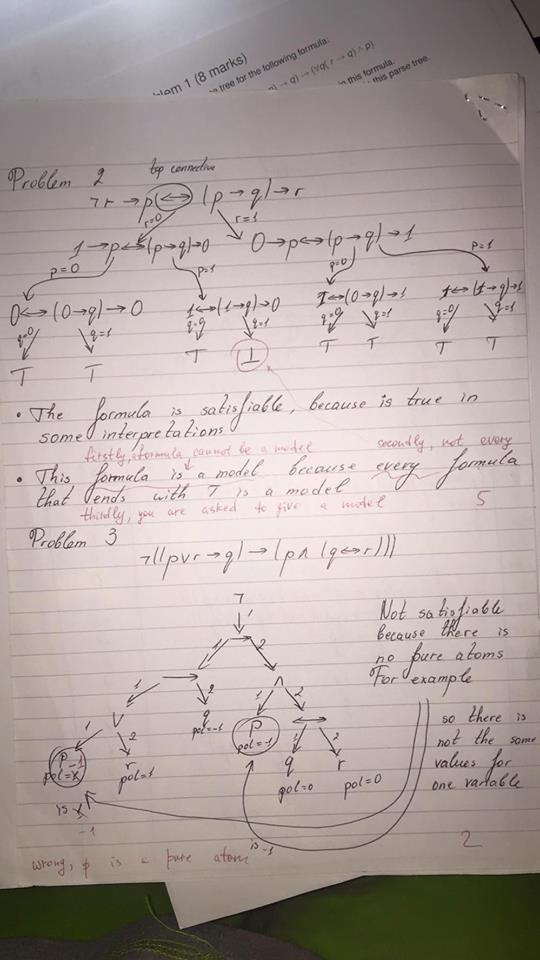 lem 1 (8 marks)
e tree for the following formula:
→ q) → (∀q( r → q) ∧ p)
in this formula.
this parse tree.
Problem 2 top connective
¬r → p ↔ (p → q) → r
r=0 r=1
1 → p ↔ (p → q) → 0 0 → p ↔ (p → q) → 1
p=0 p=1 p=0 p=1
0 ↔ (0 → q) → 0 1 ↔ (1 → q) → 0 1 ↔ (0 → q) → 1 1 ↔ (1 → q) → 1
q=0 q=1 q=0 q=1 q=0 q=1 q=0 q=1
T T T ⊥ T T T T
• The formula is satisfiable, because is true in
some interpretations
firstly, a formula cannot be a model secondly, not every
• This formula is a model because every formula
that ends with T is a model 5
thirdly, you are asked to give a model
Problem 3
¬((p∨r → q) → (p ∧ (q ↔ r)))
¬
1
→
1 2
→ ∧
1 2 1 2
∨ q p ↔
pol=-1 pol=-1
1 2 1 2
p -1 r q r
pol= pol=1 pol=0 pol=0
is
-1
is -1
Not satisfiable
because there is
no pure atoms
For example
so there is
not the same
values for
one variable
2
wrong, p is a pure atom